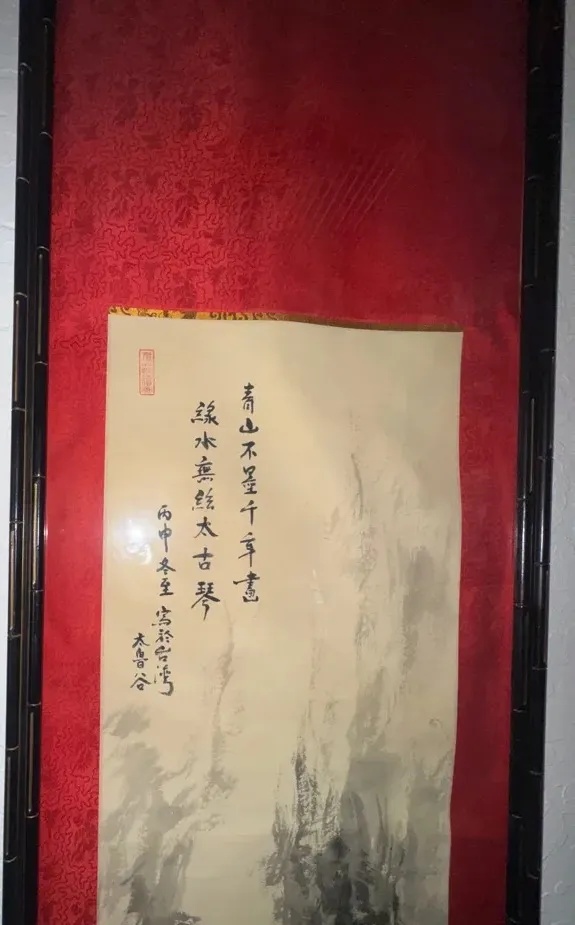 青山不墨千年畫
綠水無絃太古琴
丙申冬至 寫於台灣
太魯谷